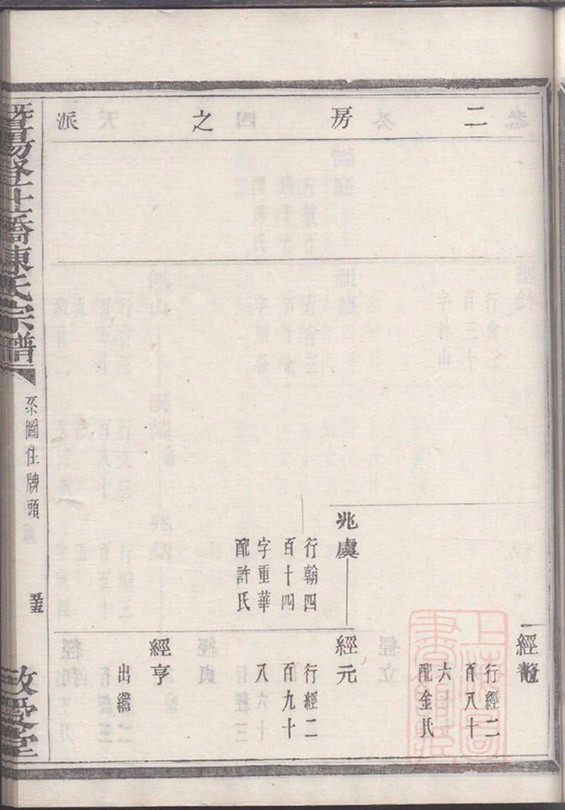 二房之派
經
行經二
百八十
六
配金氏
兆虞
行翰四
百十四
字重華
配許氏
經元
行經二
百九十
八
經亨
出繼
暨陽
橋陳氏宗譜
系圖住牌頭
敬愛堂